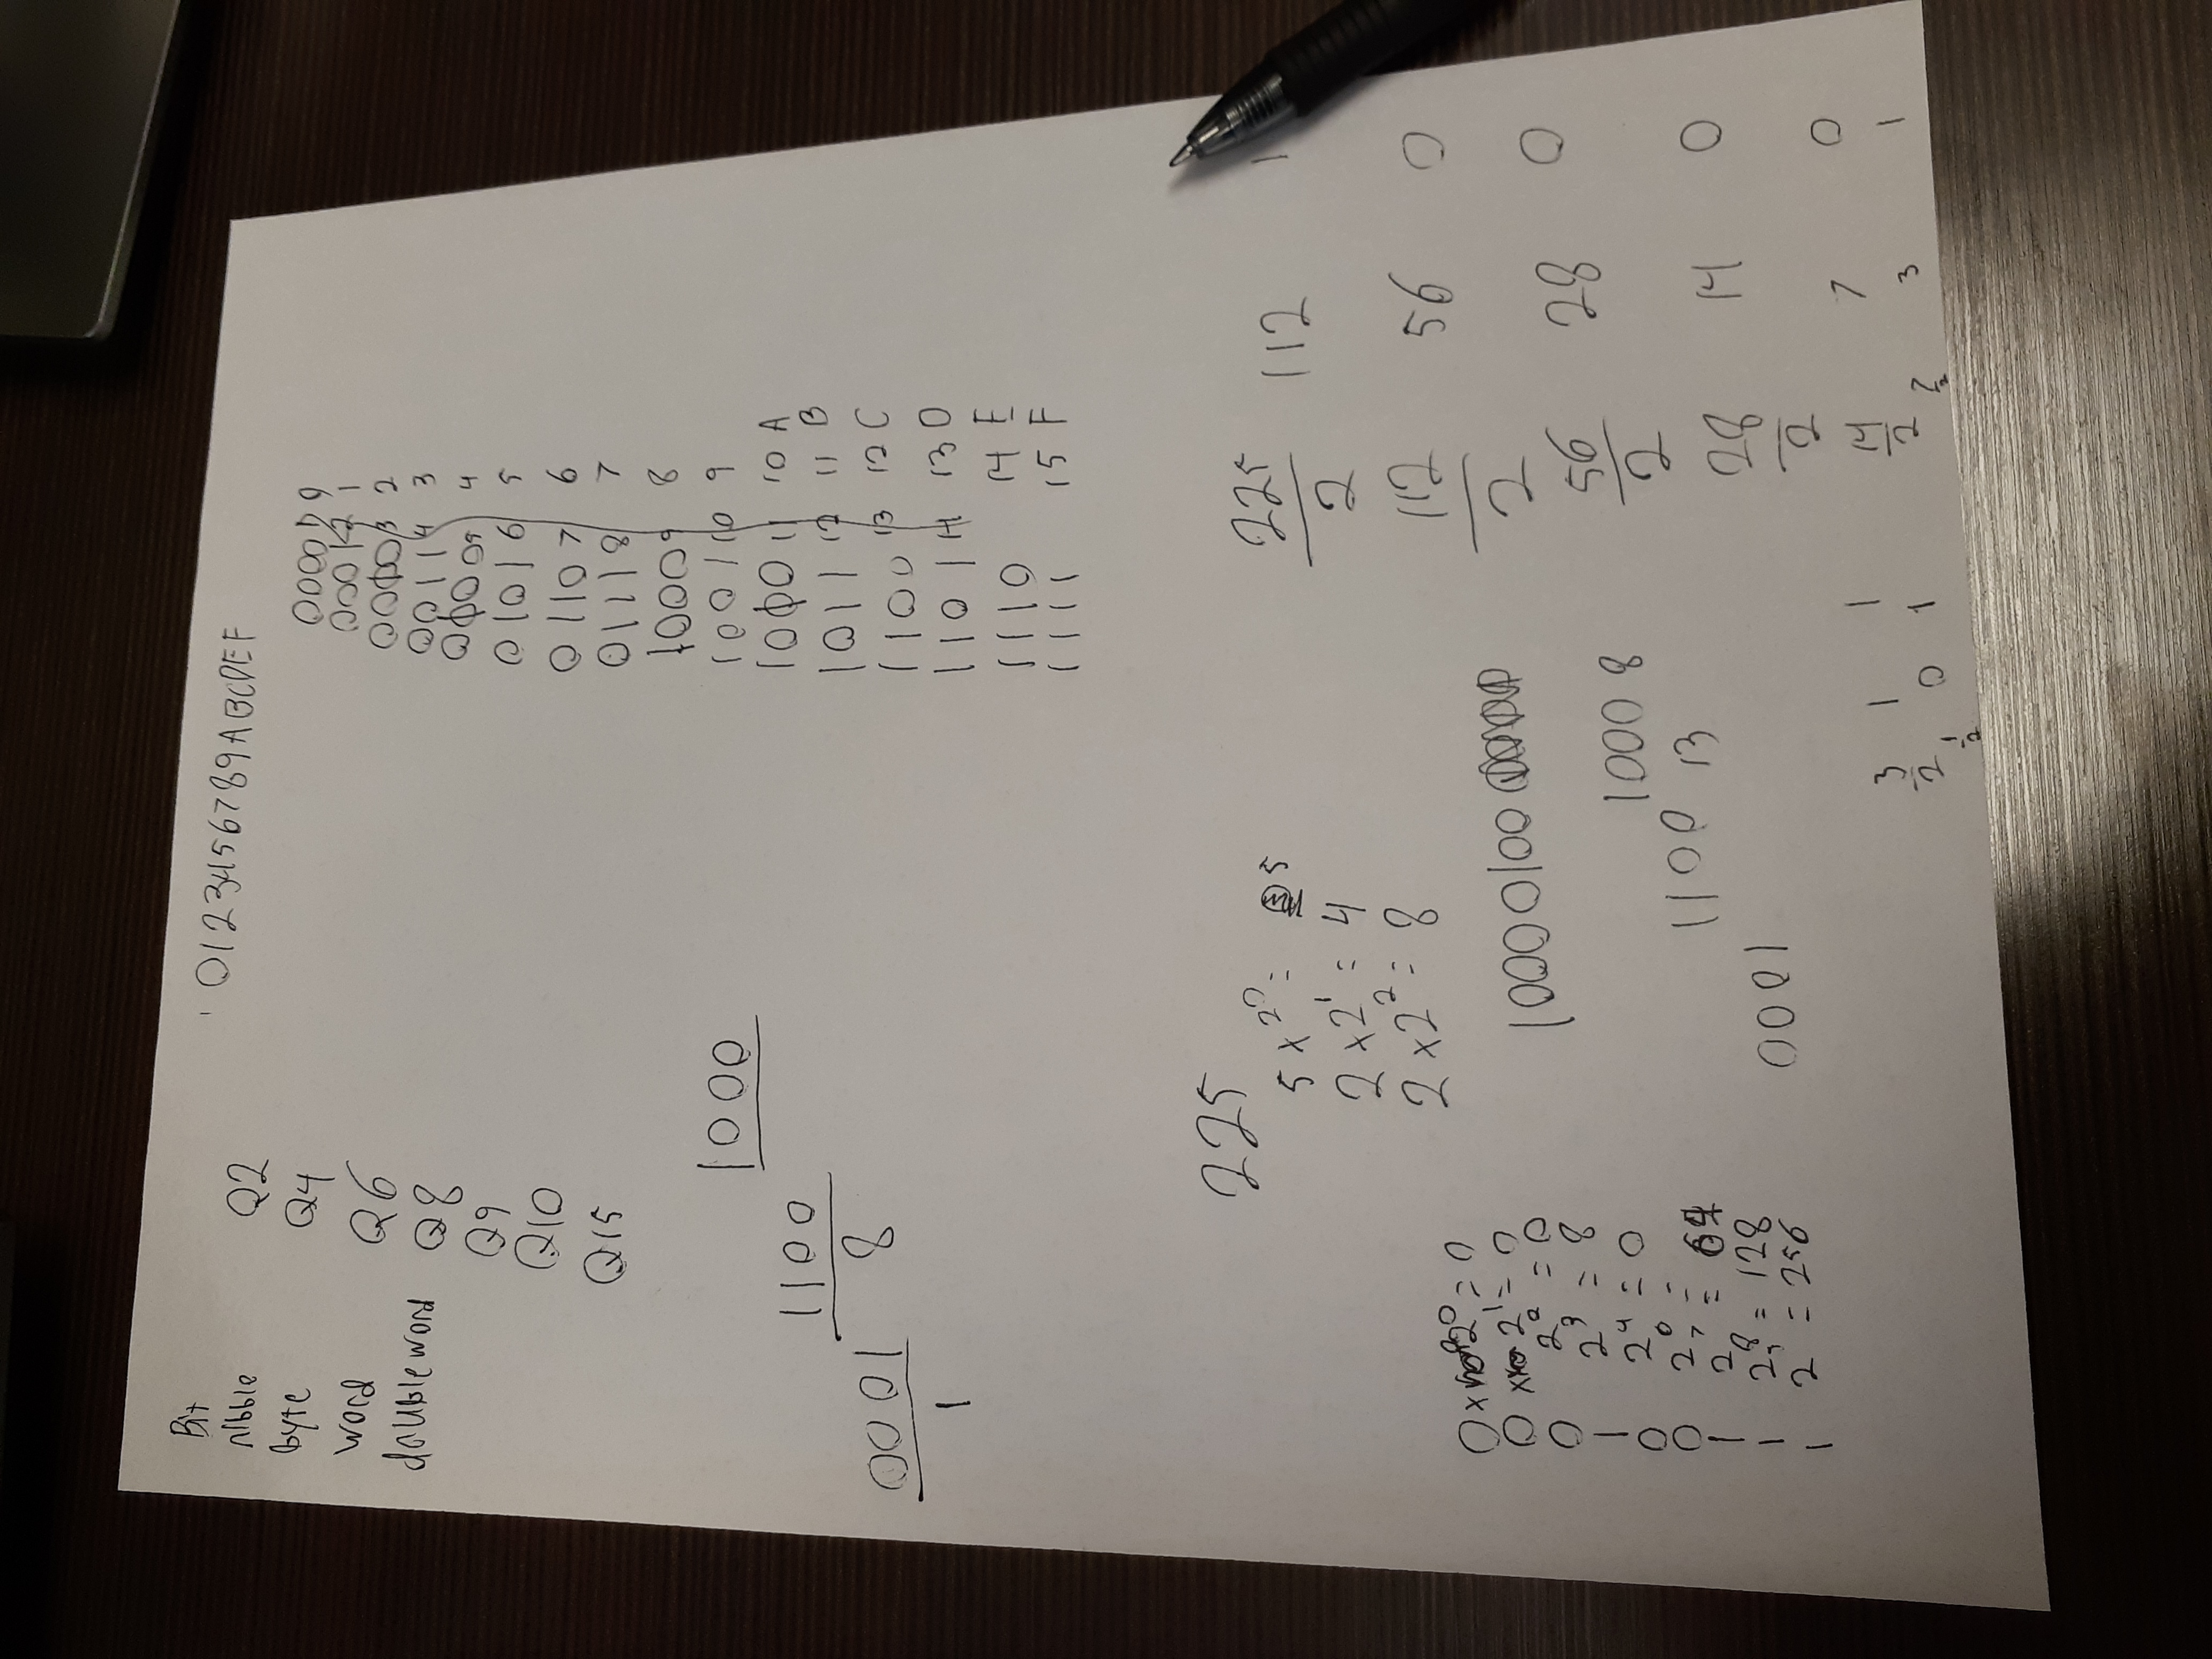 Bit
nibble
byte
word
doubleword
Q2
Q4
Q6
Q8
Q9
Q10
Q15
0123456789ABCDEF
0000 1 0
0001 2 1
0010 3 2
0011 4 3
0100 5 4
0101 6 5
0110 7 6
0111 8 7
1000 9 8
1001 10 9
1010 11 10 A
1011 12 11 B
1100 13 12 C
1101 14 13 D
1110 14 E
1111 15 F
1000
1100
8
0001
1
225
5 x 2⁰ = 5
2 x 2¹ = 4
2 x 2² = 8
0 x 2⁰ = 0
0 2¹ = 0
0 2² = 0
1 2³ = 8
0 2⁴ = 0
0 2 =
1 2⁷ = 64
1 2⁸ = 128
1 2 = 256
10000100
1000 8
1100 13
0001
225/2 112 1
112/2 56 0
56/2 28 0
28/2 14 0
14/2 7 0
7/2 3 1
3/2 1 1
1/2 0 1